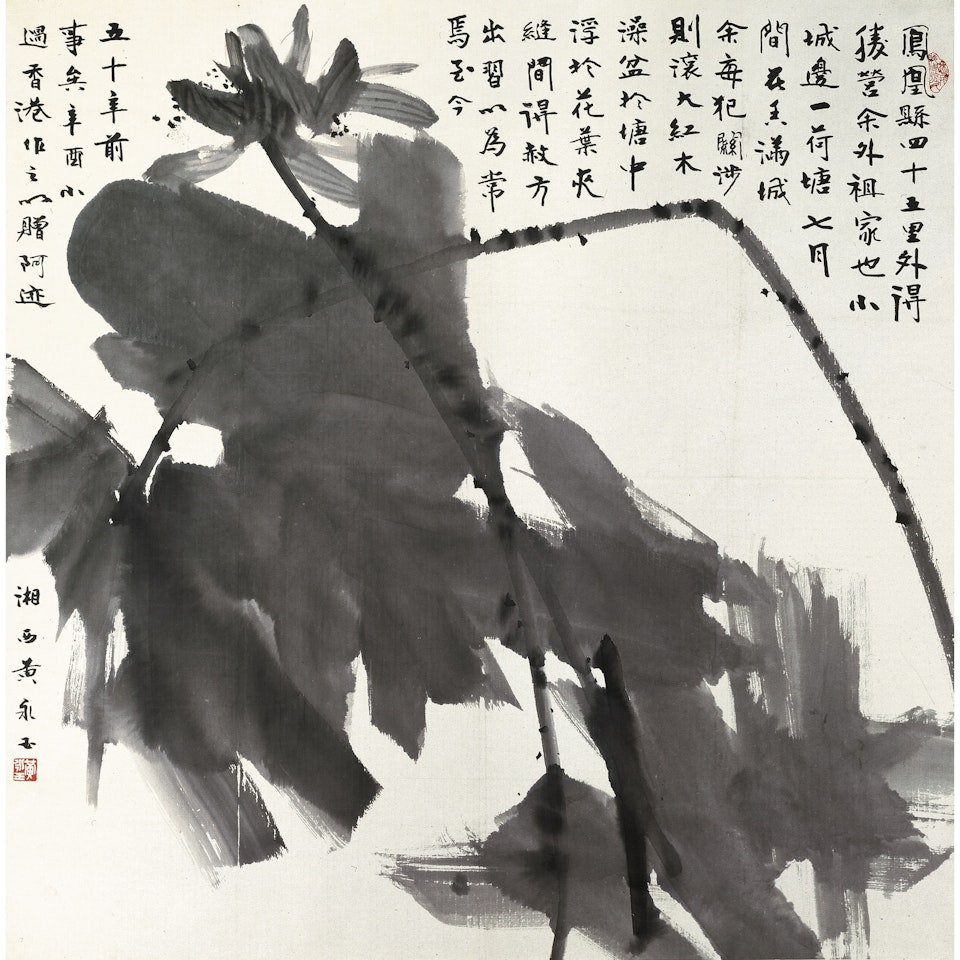 鳳凰縣四十五里外得
勝營余外祖家也小
城邊一荷塘七月
間花香滿城
余每犯涉
則滾大紅木
澡盆於塘中
浮於花葉夾
縫間得赦方
出習以為常
焉至今
五十年前
事矣辛酉小
過香港作之以贈阿迹
湘西黃永玉